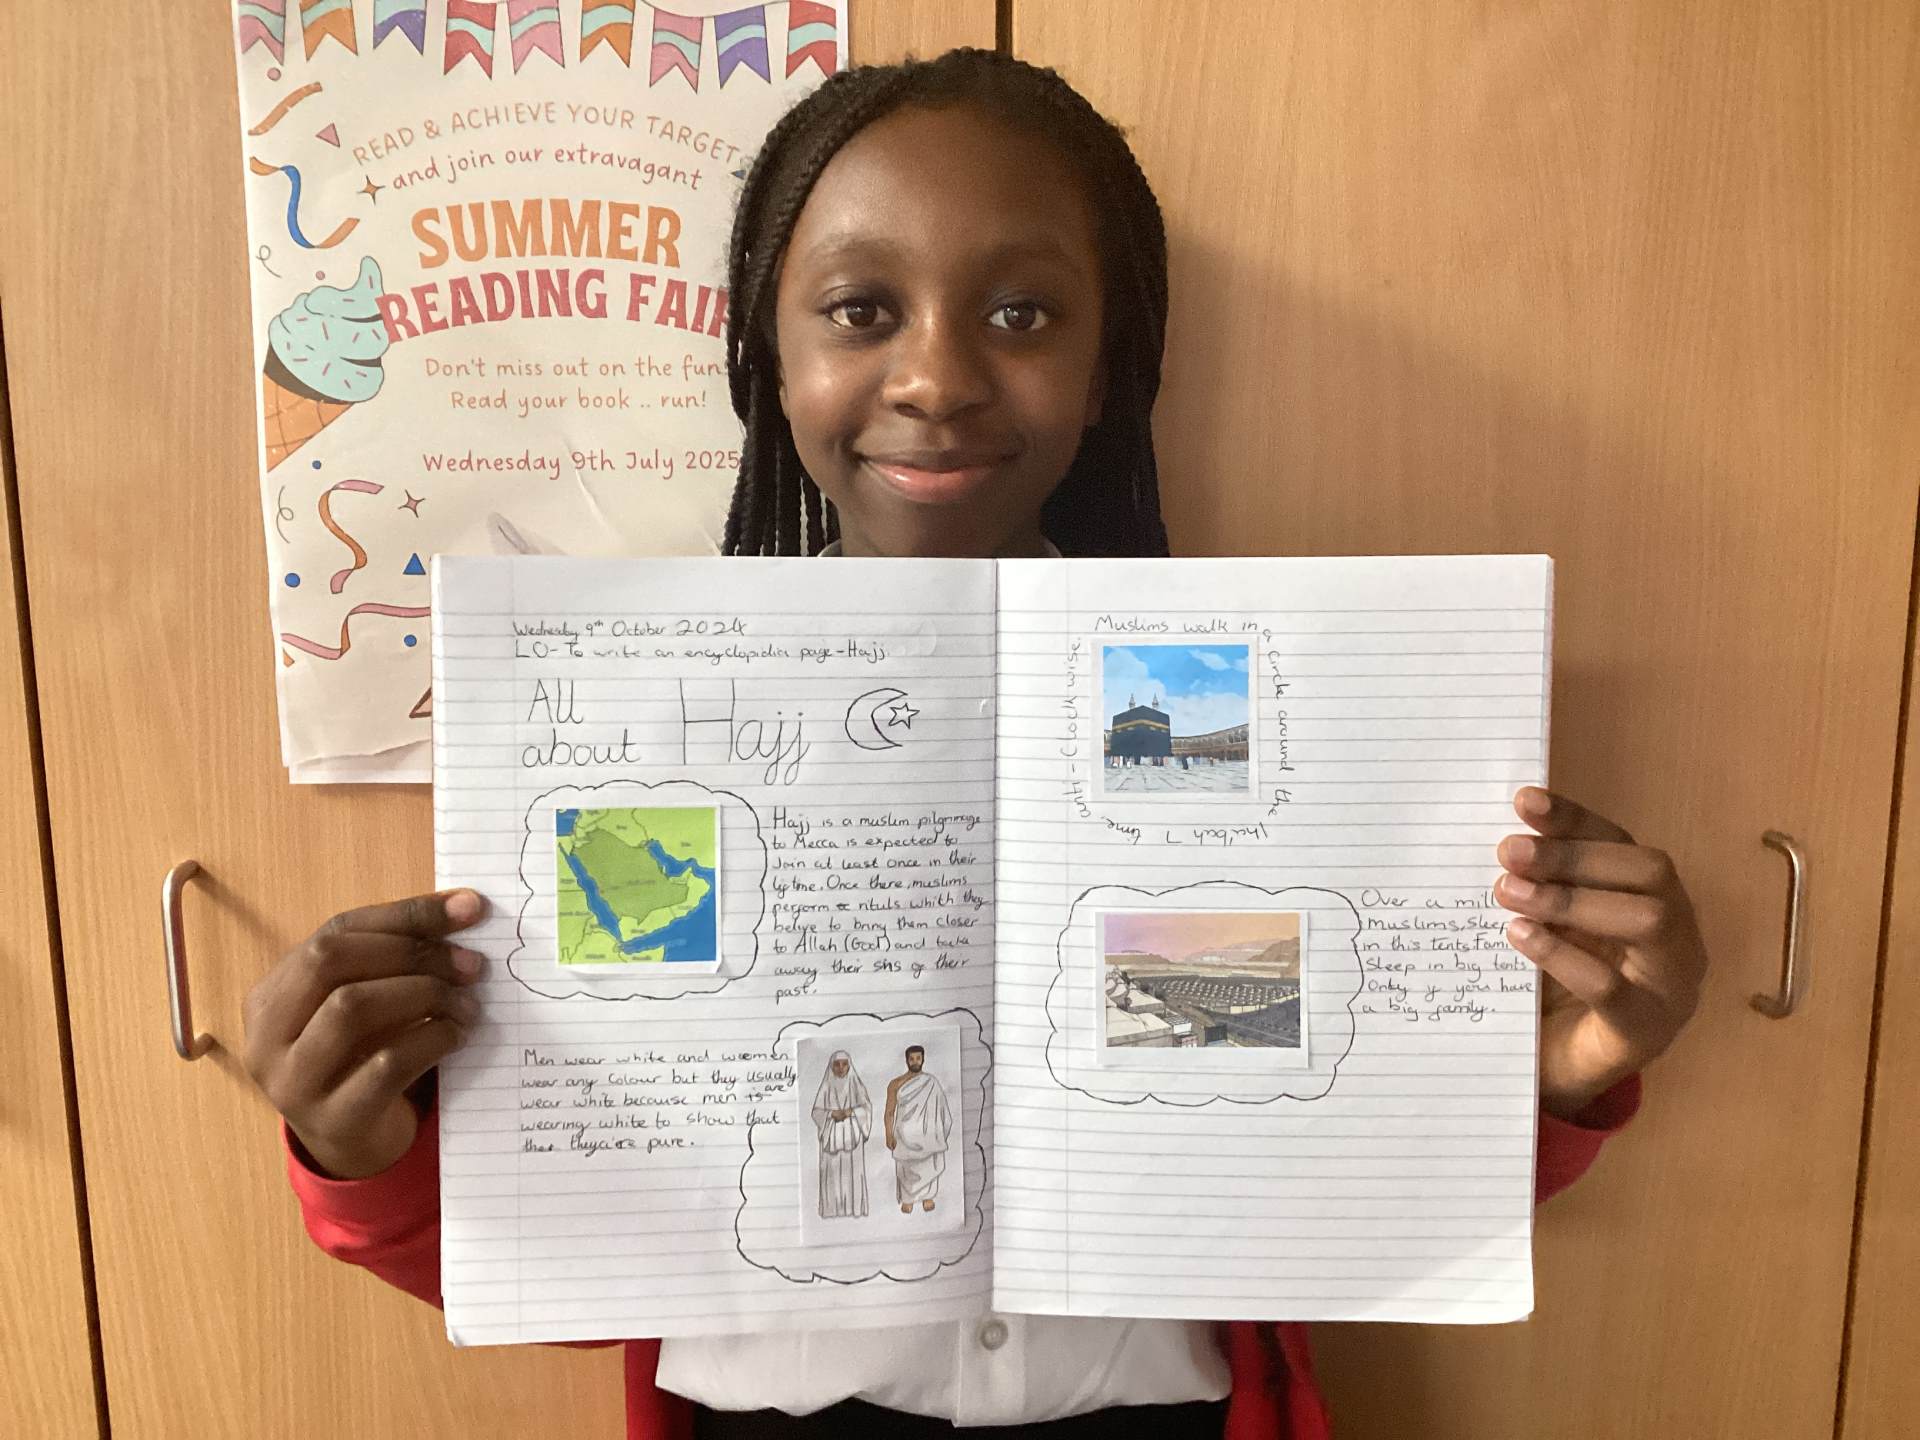 READ & ACHIEVE YOUR TARGET
and join our extravagant
SUMMER
READING FAIR
Don't miss out on the fun
Read your book .. run!
Wednesday 9th July 2025
Wednesday 9th October 2024
LO- To write an encyclopidia page - Hajj.
All about Hajj
Hajj is a muslim pilgrimage
to Mecca is expected to
Join at least once in their
lifetime. Once there, muslims
perform rituls whith they
belive to bring them closer
to Allah (God) and take
away their sins of their
past.
Men wear white and women
wear any colour but they usually
wear white because men are
wearing white to show that
they are pure.
Muslims walk in a circle around the Ka'bah 7 time, anti-Clockwise.
Over a mill
muslims, sleep
in this tents. Fami
Sleep in big tents
Only if you have
a big family.